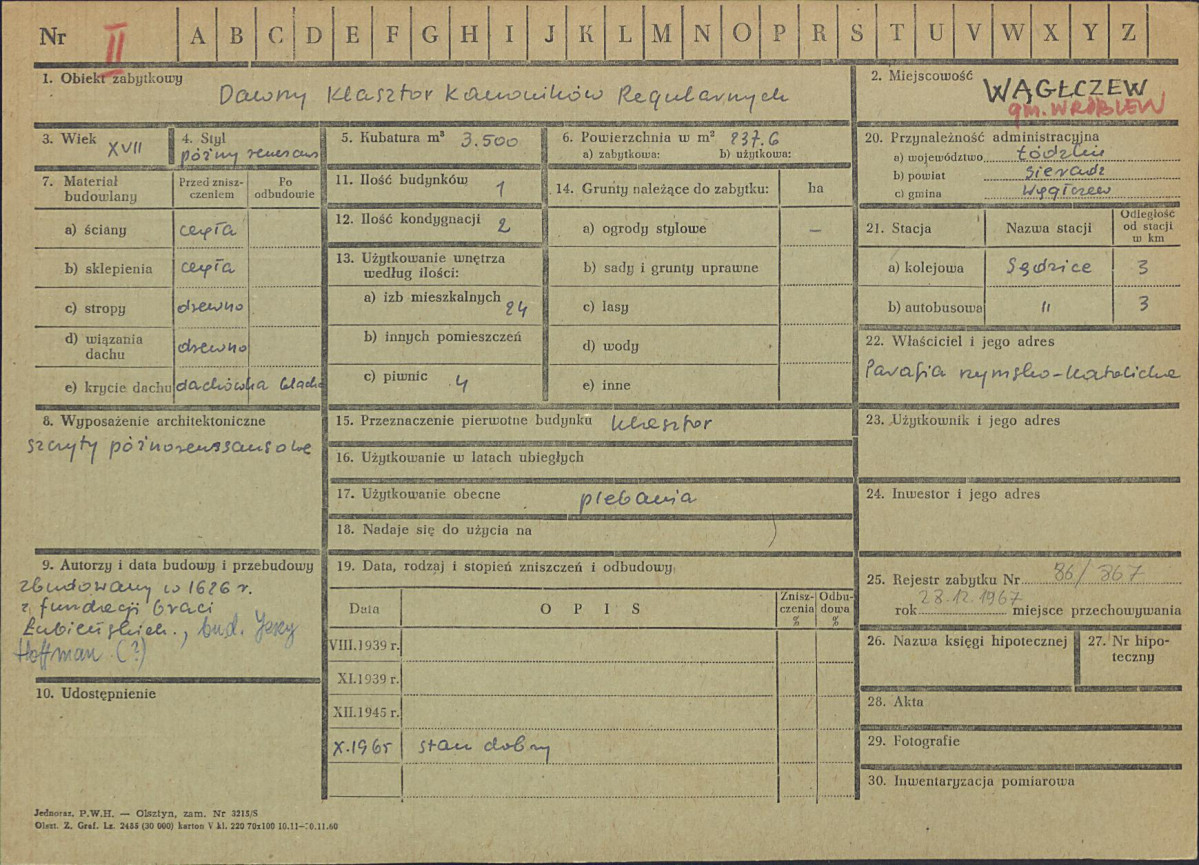 Nr II A B C D E F G H I J K L M N O P R S T U V W X Y Z
1. Obiekt zabytkowy
Dawny Klasztor Kanoników Regularnych
2. Miejscowość
WĄGŁCZEW
gm. WRÓBLEW
3. Wiek XVII
4. Styl
późny renesans
5. Kubatura m³ 3.500
6. Powierzchnia w m² 837.6
a) zabytkowa: b) użytkowa:
7. Materiał budowlany
Przed zniszczeniem
Po odbudowie
a) ściany cegła
b) sklepienia cegła
c) stropy drewno
d) wiązania dachu drewno
e) krycie dachu dachówka blacha
8. Wyposażenie architektoniczne
szczyty późnorenesansowe
9. Autorzy i data budowy i przebudowy
zbudowany w 1626 r.
z fundacji braci
Łubieńskich., bud. Jerzy
Hoffman (?)
10. Udostępnienie
11. Ilość budynków 1
12. Ilość kondygnacji 2
13. Użytkowanie wnętrza
według ilości:
a) izb mieszkalnych 24
b) innych pomieszczeń
c) piwnic 4
14. Grunty należące do zabytku: ha
a) ogrody stylowe –
b) sady i grunty uprawne
c) lasy
d) wody
e) inne
15. Przeznaczenie pierwotne budynku klasztor
16. Użytkowanie w latach ubiegłych
17. Użytkowanie obecne plebania
18. Nadaje się do użycia na
19. Data, rodzaj i stopień zniszczeń i odbudowy
Data OPIS Zniszczenia % Odbudowa %
VIII.1939 r.
XI.1939 r.
XII.1945 r.
X.1965 stan dobry
20. Przynależność administracyjna
a) województwo Łódzkie
b) powiat Sieradz
c) gmina Wągłczew
21. Stacja Nazwa stacji Odległość od stacji w km
a) kolejowa Sędzice 3
b) autobusowa " 3
22. Właściciel i jego adres
Parafia rzymsko-katolicka
23. Użytkownik i jego adres
24. Inwestor i jego adres
25. Rejestr zabytku Nr 86/867
rok 28.12.1967 miejsce przechowywania
26. Nazwa księgi hipotecznej
27. Nr hipoteczny
28. Akta
29. Fotografie
30. Inwentaryzacja pomiarowa
Jednoraz. P.W.H. — Olsztyn, zam. Nr 3215/S
Olszt. Z. Graf. Lz. 2485 (30 000) karton V kl. 220 70x100 10.11—